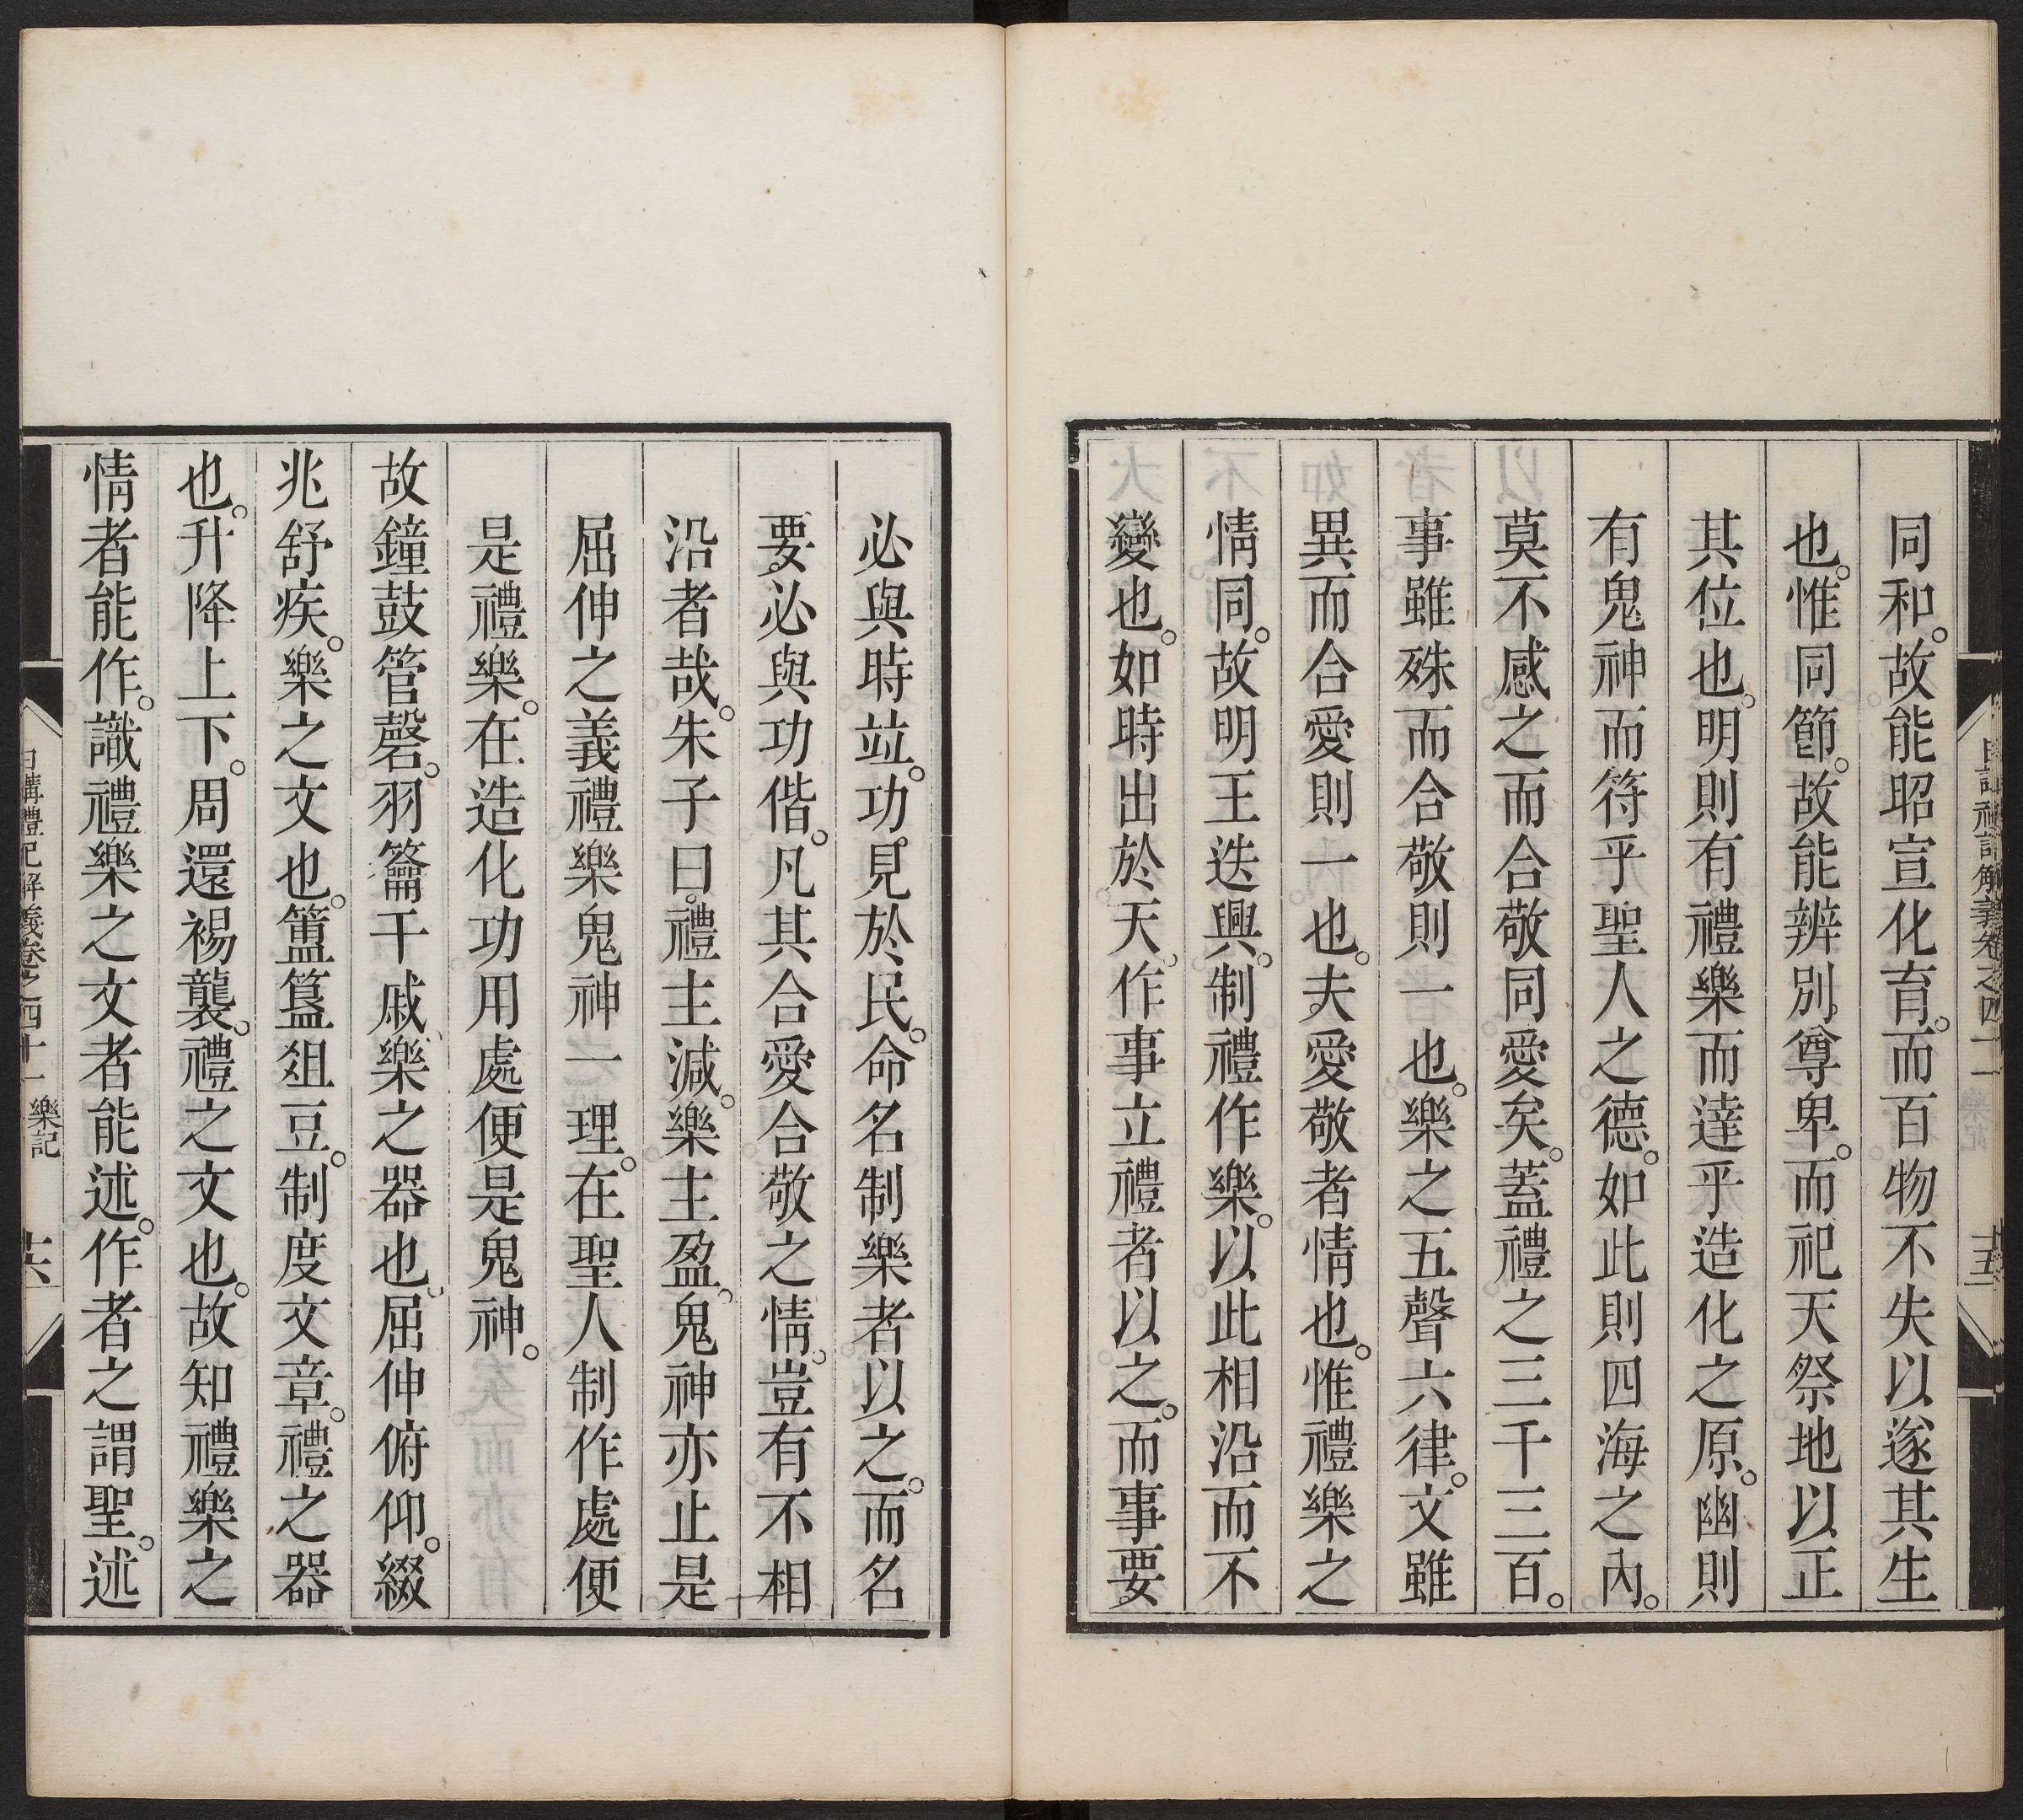 同和。故能昭宣化育。而百物不失以遂其生
也。惟同節。故能辨別尊卑。而祀天祭地以正
其位也。明則有禮樂而達乎造化之原。幽則
有鬼神而符乎聖人之德。如此則四海之內。
莫不感之而合敬同愛矣。蓋禮之三千三百。
事雖殊而合敬則一也。樂之五聲六律。文雖
異而合愛則一也。夫愛敬者情也。惟禮樂之
情同。故明王迭興。制禮作樂。以此相沿而不
變也。如時出於天。作事立禮者以之。而事要
必與時竝。功見於民。命名制樂者以之。而名
要必與功偕。凡其合愛合敬之情。豈有不相
沿者哉。朱子曰。禮主減。樂主盈。鬼神亦止是
屈伸之義禮樂鬼神一理。在聖人制作處便
是禮樂。在造化功用處便是鬼神。
故鐘鼓管磬。羽籥干戚。樂之器也。屈伸俯仰。綴
兆舒疾。樂之文也。簠簋俎豆。制度文章。禮之器
也。升降上下。周還裼襲。禮之文也。故知禮樂之
情者能作。識禮樂之文者能述。作者之謂聖。述
日講禮記解義卷之四十一 樂記 十六